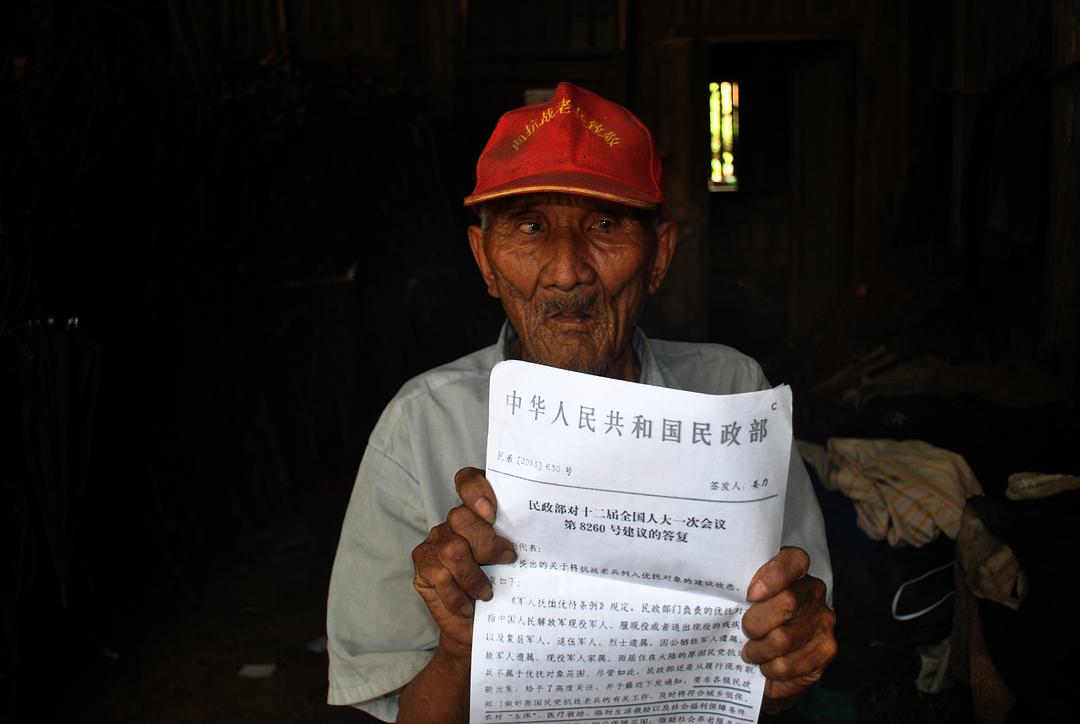 向抗战老兵致敬
C
中华人民共和国民政部
民函〔2013〕630 号
签发人：姜力
民政部对十二届全国人大一次会议
第 8260 号建议的答复
代表：
提出的关于将抗战老兵列入优抚对象的建议收悉，
如下：
《军人抚恤优待条例》规定，民政部门负责的优抚对
指中国人民解放军现役军人、服现役或者退出现役的残疾
以及复员军人、退伍军人、烈士遗属、因公牺牲军人遗属、
故军人遗属、现役军人家属，而居住在大陆的原国民党抗
兵不属于优抚对象范围。尽管如此，民政部还是从履行现有职
能出发，给予了高度关注，并于最近下发通知，要求各级民政
部门做好原国民党抗战老兵的有关工作，及时将符合城乡低保、
农村“五保”、医疗救助、临时生活救助以及社会福利保障条件